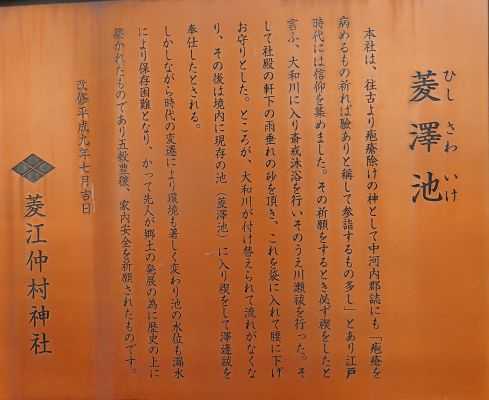 菱澤池
ひしさわいけ
本社は、往古より疱瘡除けの神として中河内郡誌にも「疱瘡を
病めるもの祈れば験ありと稱して参詣するもの多し」とあり江戸
時代には信仰を集めました。その祈願をするとき必ず禊をしたと
言ふ、大和川に入り斎戒沐浴を行いそのうえ川瀬祓を行った。そ
して社殿の軒下の雨垂れの砂を頂き、これを袋に入れて腰に下げ
お守りとした。ところが、大和川が付け替えられて流れがなくな
り、その後は境内に現存の池（菱澤池）に入り禊をして澤辺祓を
奉仕したとされる。
しかしながら時代の変遷により環境も著しく変わり池の水位も漏水
により保存困難となり、かって先人が郷土の発展の為に歴史の上に
築かれたものであり五穀豊穣、家内安全を祈願されたものです。
改修平成九年七月吉日
菱江仲村神社